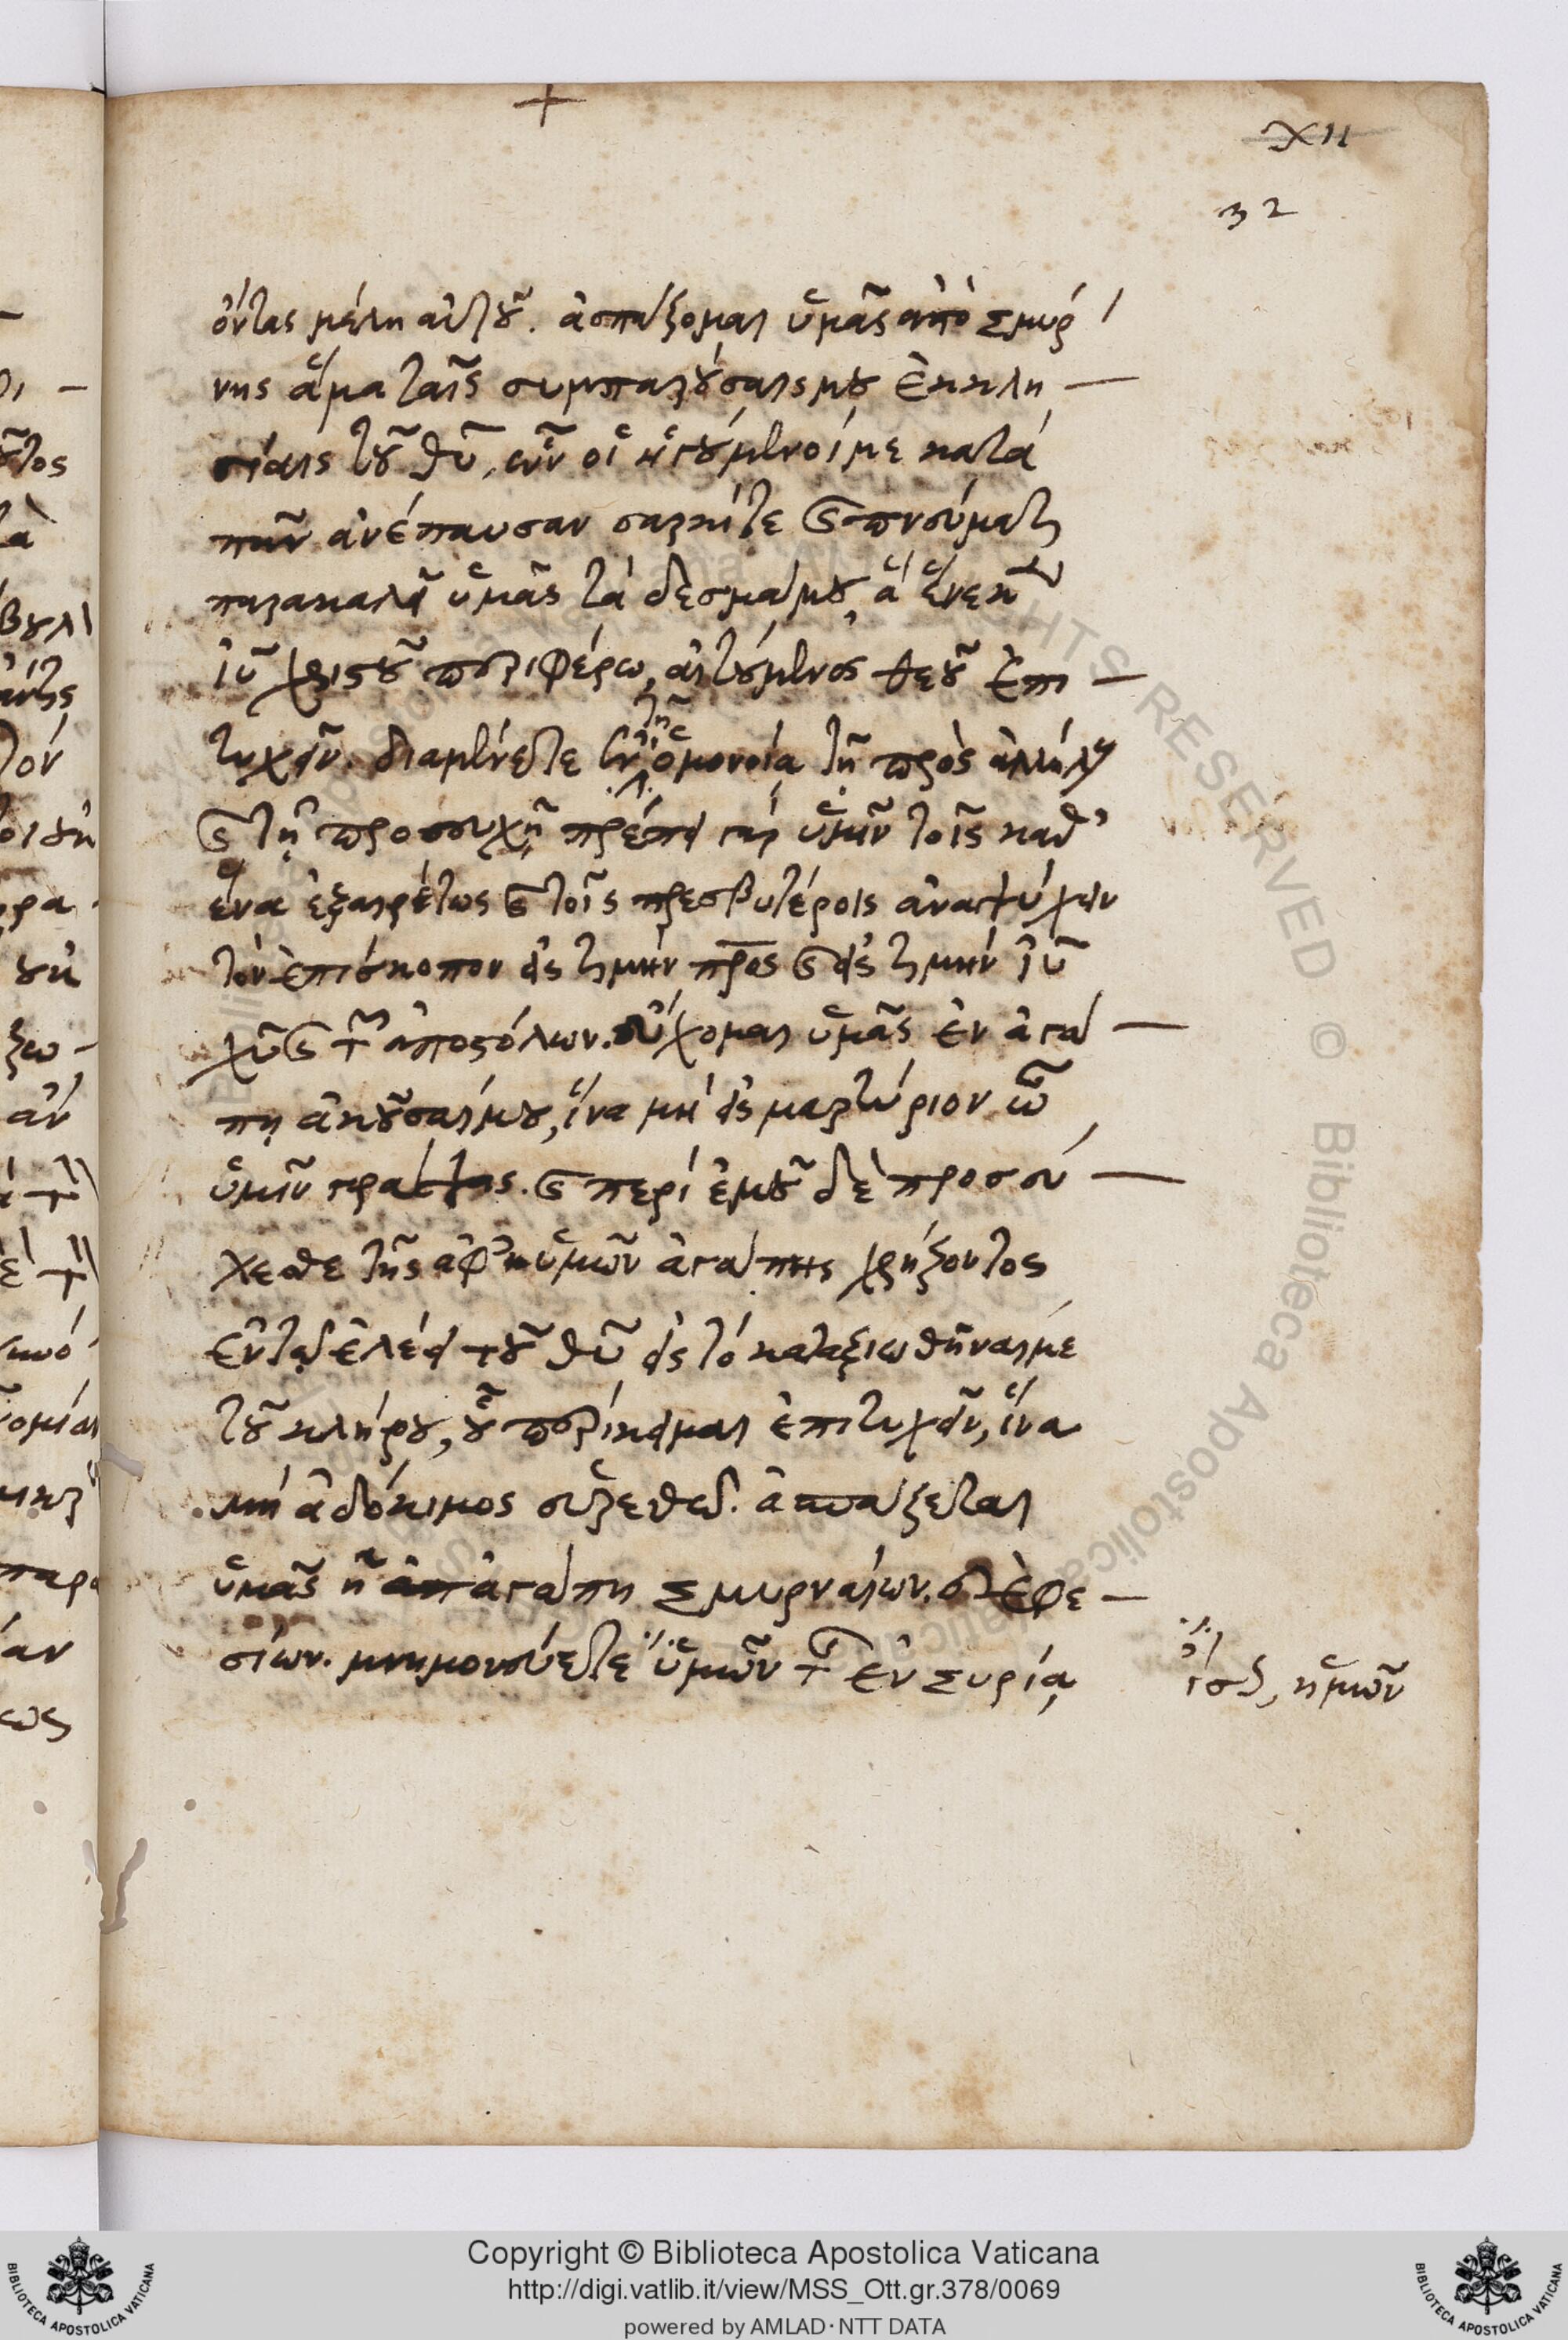 +
XII
32
ὄντας μέλη αὐτοῦ. ἀσπάζομαι ὑμᾶς ἀπὸ Σμύρ
νης ἅμα ταῖς συμπαρούσαις μου ἐκκλη –
σίαις τοῦ θυ, οἳ κατά
ἀνέπαυσαν σαρκί τε καὶ πνεύματι
παρακαλεῖ ὑμᾶς τὰ δεσμά μου, ἃ ἕνεκεν
ιυ χριστοῦ περιφέρω, αἰτούμενος θεοῦ ἐπι –
τυχεῖν. διαμένετε ἐν τῇ ὁμονοίᾳ τῇ πρὸς ἀλλήλων
καὶ τῇ προσευχῇ πρέπει γὰρ ὑμῖν τοῖς καθ’
ἕνα ἐξαιρέτως καὶ τοῖς πρεσβυτέροις ἀναψύχειν
τὸν ἐπίσκοπον εἰς τιμὴν πρς καὶ εἰς τιμὴν ιυ
χυ καὶ τῶν ἀποστόλων. εὔχομαι ὑμᾶς ἐν ἀγά –
πῃ ἀκοῦσαί μου, ἵνα μὴ εἰς μαρτύριον ὦ
ὑμῖν γράψας. καὶ περὶ ἐμοῦ δὲ προσεύ –
χεσθε τῆς ἀφ’ ὑμῶν ἀγάπης χρήζοντος
ἐν τῷ ἐλέει τοῦ θυ εἰς τὸ καταξιωθῆναί με
τοῦ κλήρου, οὗ περίκειμαι ἐπιτυχεῖν, ἵνα
μὴ ἀδόκιμος εὑρεθῶ. ἀσπάζεται
ὑμᾶς ἡ ἀγάπη Σμυρναίων. καὶ Ἐφε –
σίων. μνημονεύετε ὑμῶν τῆς ἐν Συρίᾳ
ἴσως, ἡμῶν
Copyright © Biblioteca Apostolica Vaticana
http://digi.vatlib.it/view/MSS_Ott.gr.378/0069
powered by AMLAD·NTT DATA
BIBLIOTECA APOSTOLICA VATICANA
BIBLIOTECA APOSTOLICA VATICANA